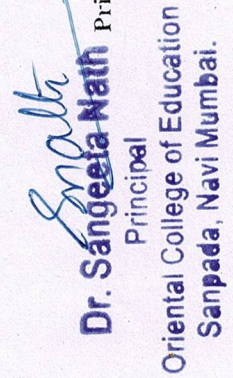 Dr. Sangeeta Nath Pri
Principal
Oriental College of Education
Sanpada, Navi Mumbai.